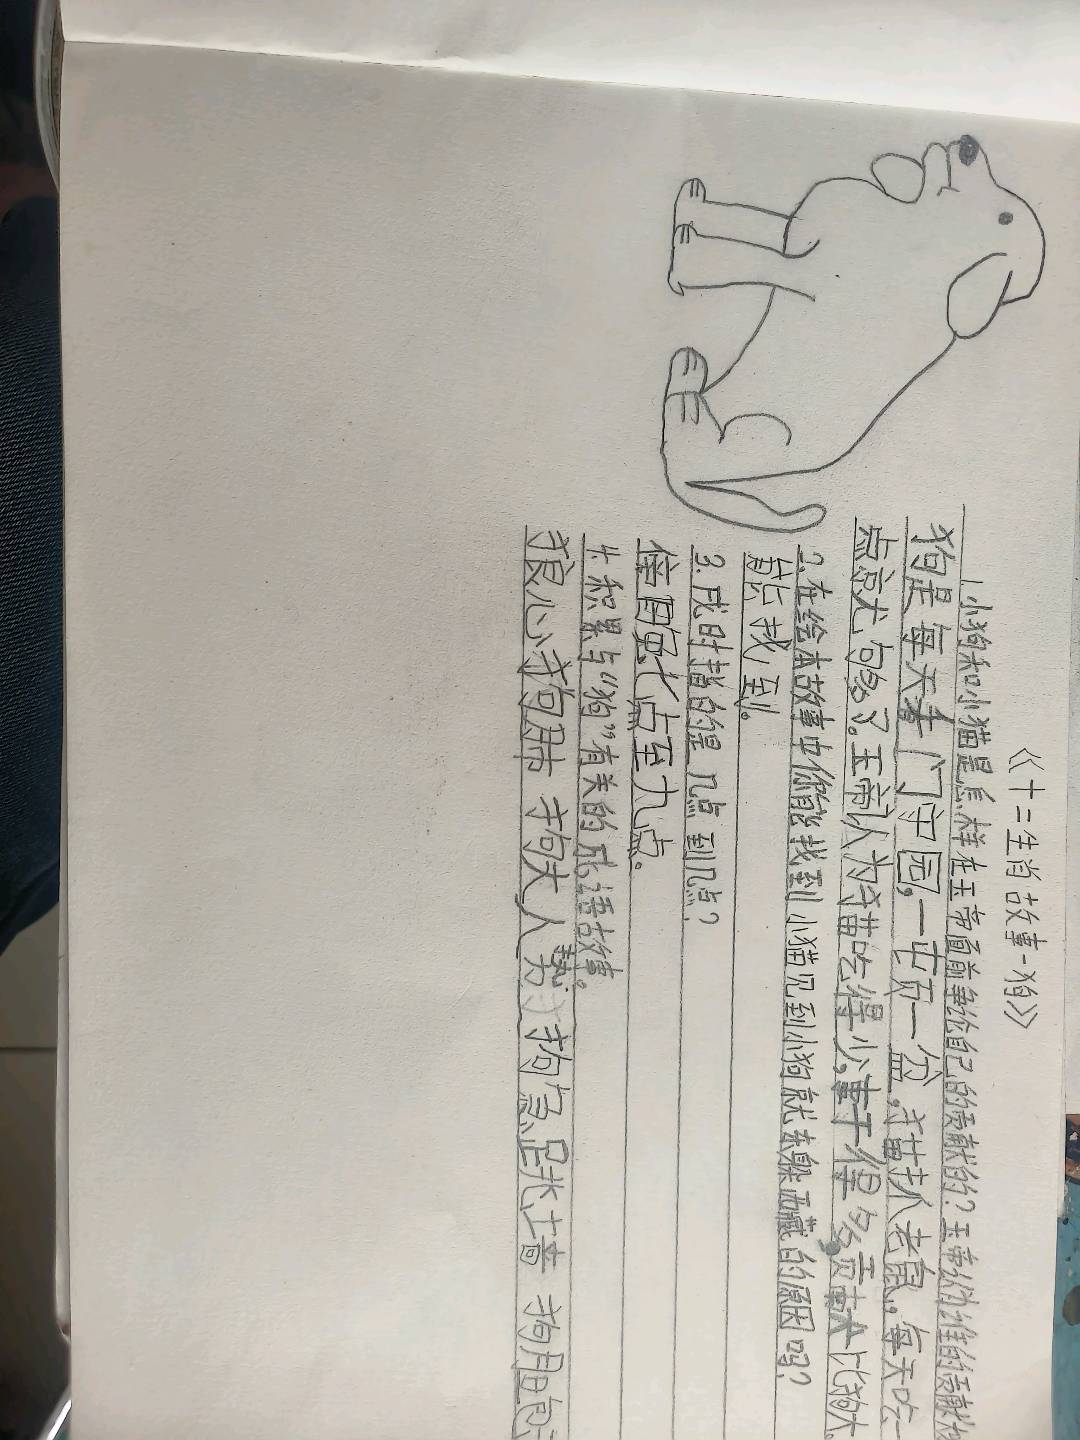 《十二生肖故事-狗》
1.小狗和小猫是怎样在玉帝面前争论自己的贡献的？玉帝认为谁的贡献
狗是每天看门守园，一屯页一盆，猫扒老鼠，每天吃一
点点尤句多了。玉帝认为猫吃得少，事干得多，贡献比狗大。
2.在绘本故事中你能找到小猫见到小狗就东躲西藏的原因吗？
能找到。
3.戌时指的是几点到几点？
七点至九点。
4.积累与“狗”有关的成语故事。
狼心狗肺 狗人势 狗急跳墙